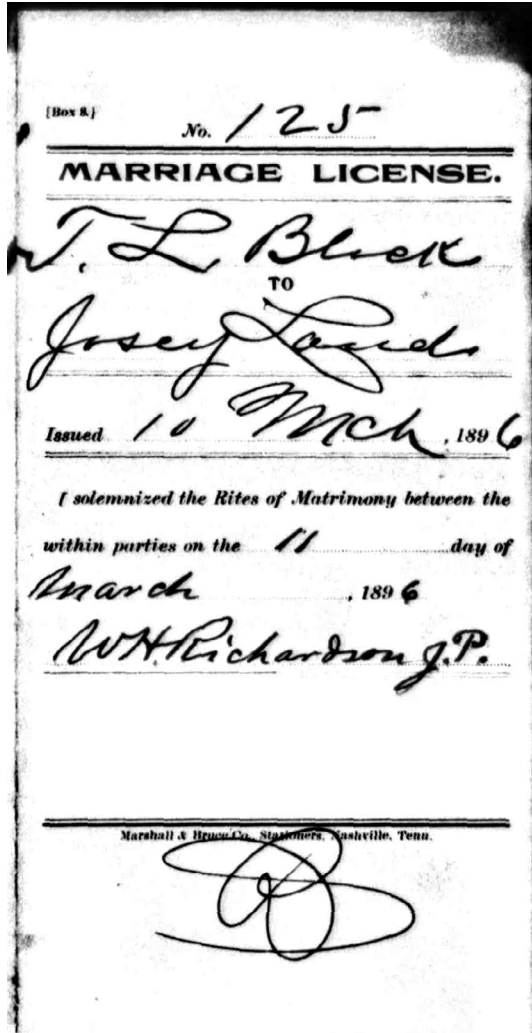 [Box 8.]
No. 125
MARRIAGE LICENSE.
T. L. Black
TO
Josey Land
Issued 10 Mch, 1896
I solemnized the Rites of Matrimony between the
within parties on the 11 day of
March, 1896
W.H. Richardson J.P.
Marshall & Bruce Co., Stationers, Nashville, Tenn.